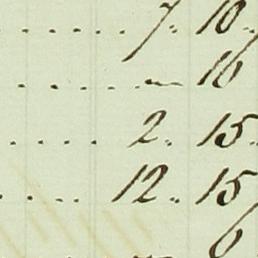 ..... 7.. 10.
...... — 16
.... 2.. 15.
.... 12.. 15
6